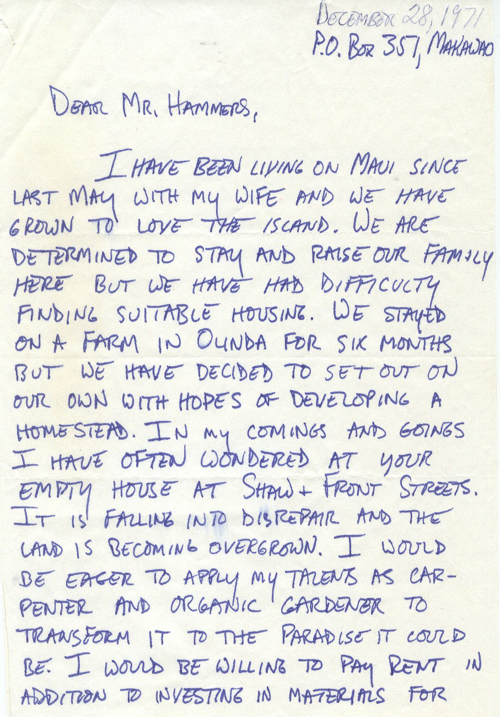 DECEMBER 28, 1971
P.O. BOX 351, MAKAWAO
DEAR MR. HAMMERS,
I HAVE BEEN LIVING ON MAUI SINCE
LAST MAY WITH MY WIFE AND WE HAVE
GROWN TO LOVE THE ISLAND. WE ARE
DETERMINED TO STAY AND RAISE OUR FAMILY
HERE BUT WE HAVE HAD DIFFICULTY
FINDING SUITABLE HOUSING. WE STAYED
ON A FARM IN OLINDA FOR SIX MONTHS
BUT WE HAVE DECIDED TO SET OUT ON
OUR OWN WITH HOPES OF DEVELOPING A
HOMESTEAD. IN MY COMINGS AND GOINGS
I HAVE OFTEN WONDERED AT YOUR
EMPTY HOUSE AT SHAW + FRONT STREETS.
IT IS FALLING INTO DISREPAIR AND THE
LAND IS BECOMING OVERGROWN. I WOULD
BE EAGER TO APPLY MY TALENTS AS CAR-
PENTER AND ORGANIC GARDENER TO
TRANSFORM IT TO THE PARADISE IT COULD
BE. I WOULD BE WILLING TO PAY RENT IN
ADDITION TO INVESTING IN MATERIALS FOR